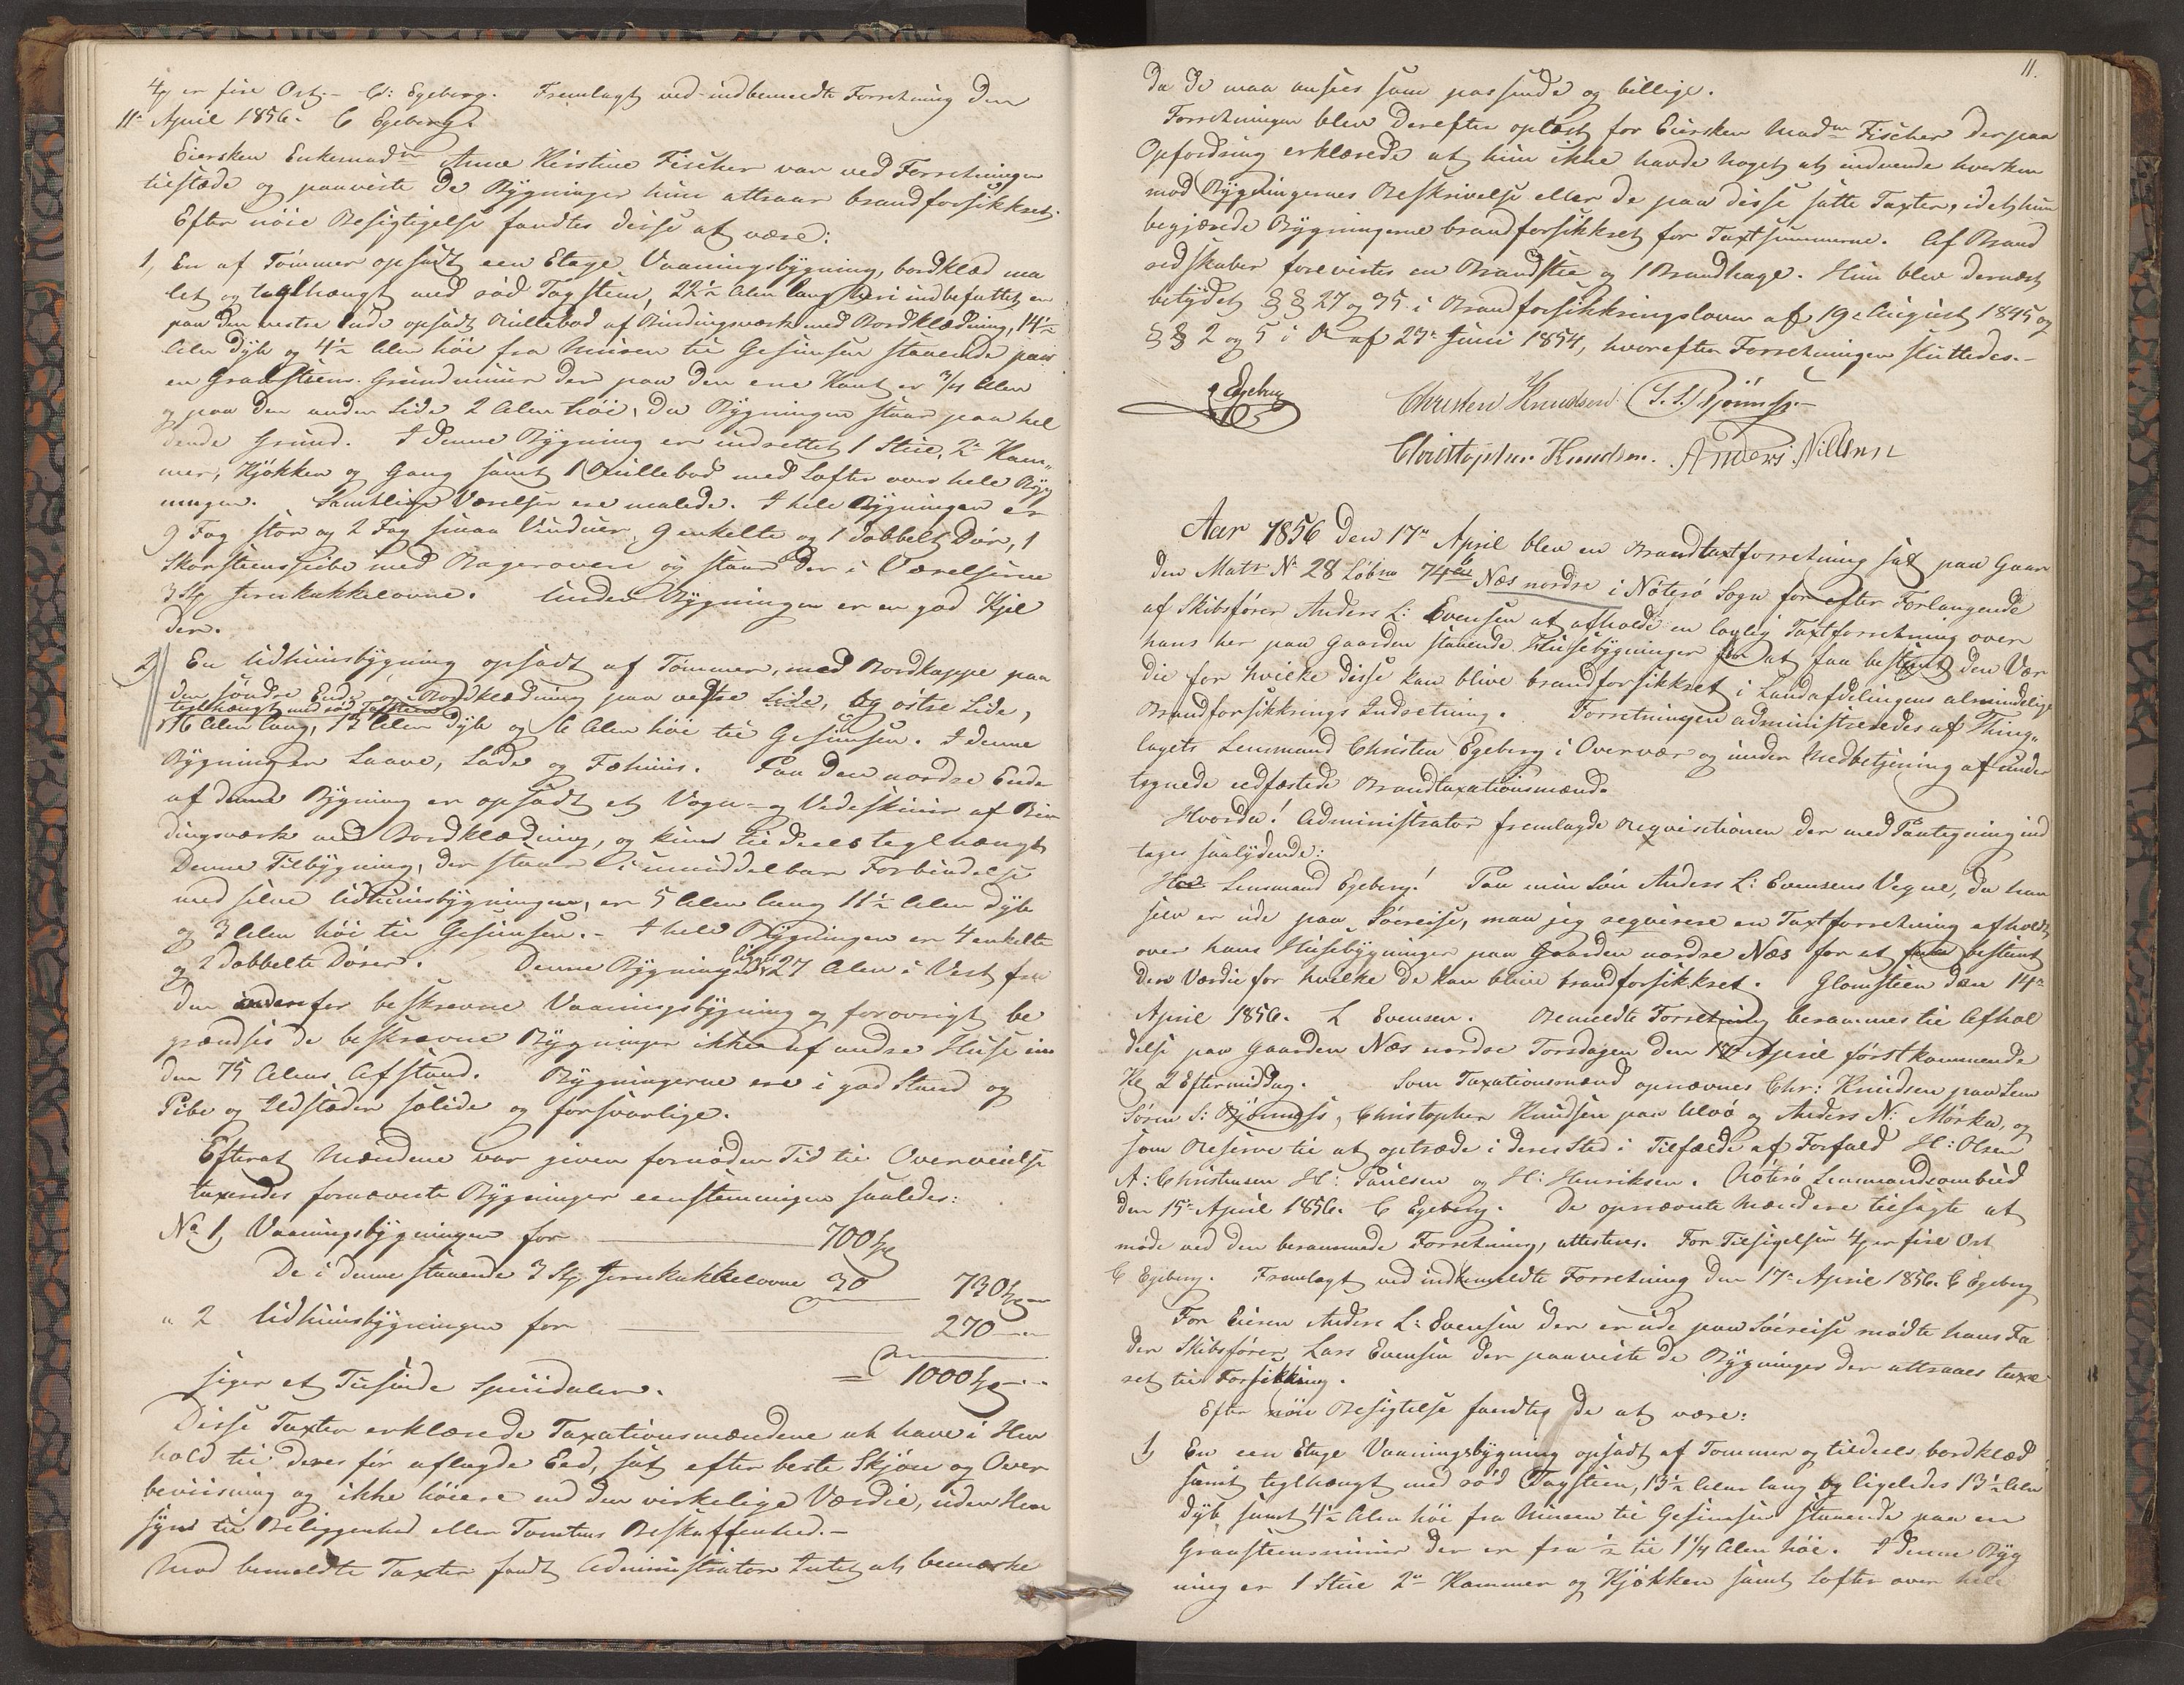 4 er fire Ort. C: Egeberg. Fremlagt ved indbemeldte Forretning den
11te April 1856. C Egeberg.
Eiersken Enkemadm Anne Kirstine Fischer var ved Forretningen
tilstæde og paaviste de Bygninger hun attraar brandforsikkret.
Efter nöie Besigtigelse fandtes disse at være:
1, En af Tömmer opsadt een Etage Vaaningsbygning, bordklæd ma
let og teglhængt med röd Tagsteen, 22½ Alen lang heri indbefattet en
paa den vestre Ende opsadt Rullebod af Bindingsværk med Bordklædning, 14½
Alen dyb og 4½ Alen höi fra Muren til Gesimsen staaende paa
en Graasteens Grundmuur der paa den ene Kant er 3/4 Alen
og paa den anden Side 2 Alen höi, da Bygningen staar paa hel
dende Grund. I denne Bygning er indrettet 1 Stue, 2de Kam„
mer, Kjökken og Gang samt 1 Rullebod med Lofter over hele Byg
ningen. Samtlige Værelser ere malede. I hele Bygningen er
9 Fag stor og 2 Fag smaa Vinduer, 9 enkelte og 1 dobbelt Dör, 1
Skorsteenspibe med Bagerovn og staar der i Værelserne
3 Stk Jernkakkelovne. Under Bygningen er en god Kjel
der.
2, En Udhuusbygning opsadt af Tömmer, med Bordkappe paa
den söndre Ende og Bordklædning paa vestre Side, og östre Side,
teglhængt med röd Tagsteen
16 Alen lang, 13 Alen dyb og 6 Alen höi til Gesimsen. I denne
Bygning er Laave, Lade og Fæhuus. Paa den nordre Ende
af denne Bygning er opsadt et Vogn- og Vedeskuur af Bin
dingsværk med Bordklædning, og kun tildeels teglhængt
Denne Tilbygning, der staar i umiddelbar Forbindelse
med selve Udhuusbygningen, er 5 Alen lang 11½ Alen dyb
og 3 Alen höi til Gesimsen. I hele Bygningen er 4 enkelte
og 2 dobbelte Dörer. Denne Bygning ligger 27 Alen i Vest fra
den ovenfor beskrevne Vaaningsbygning og forövrigt be
grændses de beskrevne Bygninger ikke af andre Huse in
den 75 Alens Afstand. Bygningerne ere i god Stand og
Pibe og Ildstæder solide og forsvarlige.
Efterat Mændene var given fornöden Tid til Overveielse
taxeredes fornævnte Bygninger eenstemmigen saaledes:
No 1, Vaaningsbygningen for 700 Spd
De i denne staaende 3 Stk Jernkakkelovne 30 730 Spd
" 2 Udhuusbygningen for 270
= 1000 Spd
siger et Tusinde Speciedaler.
Disse Taxter erklærede Taxationsmændene at have i Hen
hold til deres för aflagde Eed, sat efter beste Skjön og Over
beviisning og ikke höiere end den virkelige Værdie, uden Hen
syn til Beliggenhed eller Tomtens Beskaffenhed.
Mod bemeldte Taxter fandt Administrator Intet at bemærke
11.
da de maa ansees som passende og billige.
Forretningen blev derefter oplæst for Eiersken Madm Fischer der paa
Opfordring erklærede at hun ikke havde Noget at indvende hverken
mod Bygningernes Beskrivelse eller de paa disse satte Taxter, idet hun
begjærede Bygningerne brandforsikkret for Taxtsummerne. Af Brand
redskaber forevistes en Brandstie og 1 Brandhage. Hun blev dernæst
betydet §§ 27 og 35 i Brandforsikkringsloven af 19de August 1845 og
§§ 2 og 5 i do af 27de Juni 1854, hvorefter Forretningen sluttedes.
C Egeberg
Christen Knudsen S. S. Bjönness
Christopher Knudsen. Anders Nillsen
Aar 1856 den 17de April blev en Brandtaxtforretning sat paa Gaar
den Matr No 28 Löbno 74 Næs nordre i Nöterö Sogn for efter Forlangende
af Skibsförer Anders L: Evensen at afholde en lovlig Taxtforretning over
hans her paa Gaarden staaende Huusebygninger for at faa bestemt den Vær
die for hvilke disse kan blive brandforsikkret i Landafdelingens almindelige
Brandforsikkrings Indretning. Forretningen administreredes af Thing„
lagets Lensmand Christen Egeberg i Overvær og under Medbetjening af under
tegnede eedfæstede Brandtaxationsmænd.
Hvorda! Administrator fremlagde Reqvisitionen der med Paategning ind
tages saalydende:
Hr Lensmand Egeberg! Paa min Sön Anders L: Evensens Vegne, da han
selv er ude paa Söereise, maa jeg reqvirere en Taxtforretning afholdt
over hans Husebygninger paa Gaarden nordre Næs for at faa bestemt
den Værdie for hvilke de kan blive brandforsikkret. Glomsteen den 14de
April 1856. L Evensen. Bemeldte Forretning berammes til Afhol
delse paa Gaarden Næs nordre Torsdagen den 17de April förstkommende
Kl 2 Eftermiddag. Som Taxationsmænd opnævnes Chr: Knudsen paa Lem
Sören S: Bjönness, Christopher Knudsen paa Ulvö og Anders N: Mörka, og
som Reserve til at optræde i deres Sted i Tilfælde af Forfald H: Olsen
A: Christensen H: Paulsen og H: Henriksen. Nöterö Lensmandsombud
den 15de April 1856. C Egeberg. De opnævnte Mændene tilsagte at
möde ved den berammede Forretning, attesteres. For Tilsigelsen 4 er fire Ort
C Egeberg. Fremlagt ved indbemeldte Forretning den 17de April 1856. C Egeberg
For Eieren Anders L: Evensen der er ude paa Söereise mödte hans Fa
der Skibsförer Lars Evensen der paaviste de Bygninger der attraaes taxe
ret til Forsikkring.
Efter nöie Besigtelse fandtes de at være:
1, En een Etage Vaaningsbygning opsadt af Tömmer og tildeels bordklæd
samt teglhængt med röd Tagsteen, 13½ Alen lang og ligeledes 13½ Alen
dyb samt 4½ Alen höi fra Muren til Gesimsen staaende paa en
Graasteensmuur der er fra ½ til 1 1/4 Alen höi. I denne Byg
ning er 1 Stue 2de Kammer og Kjökken samt Lofter over hele